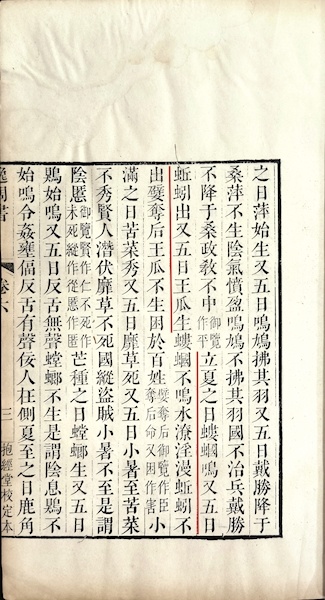 之日萍始生又五日鳴鳩拂其羽又五日戴勝降于
桑萍不生陰氣憤盈鳴鳩不拂其羽國不治兵戴勝
不降于桑政教不中御覽作平立夏之日螻蟈鳴又五日
蚯蚓出又五日王瓜生螻蟈不鳴水潦淫漫蚯蚓不
出嬖奪后王瓜不生困於百姓嬖奪后御覽作臣奪后命又困作害小
滿之日苦菜秀又五日靡草死又五日小暑至苦菜
不秀賢人潛伏靡草不死國縱盜賊小暑不至是謂
陰慝御覽賢作仁不死作未死縱作從慝作匿芒種之日螳螂生又五日
鵙始鳴又五日反舌無聲螳螂不生是謂陰息鵙不
始鳴令姦壅偪反舌有聲佞人在側夏至之日鹿角
逸周書
卷六
三
抱經堂校定本